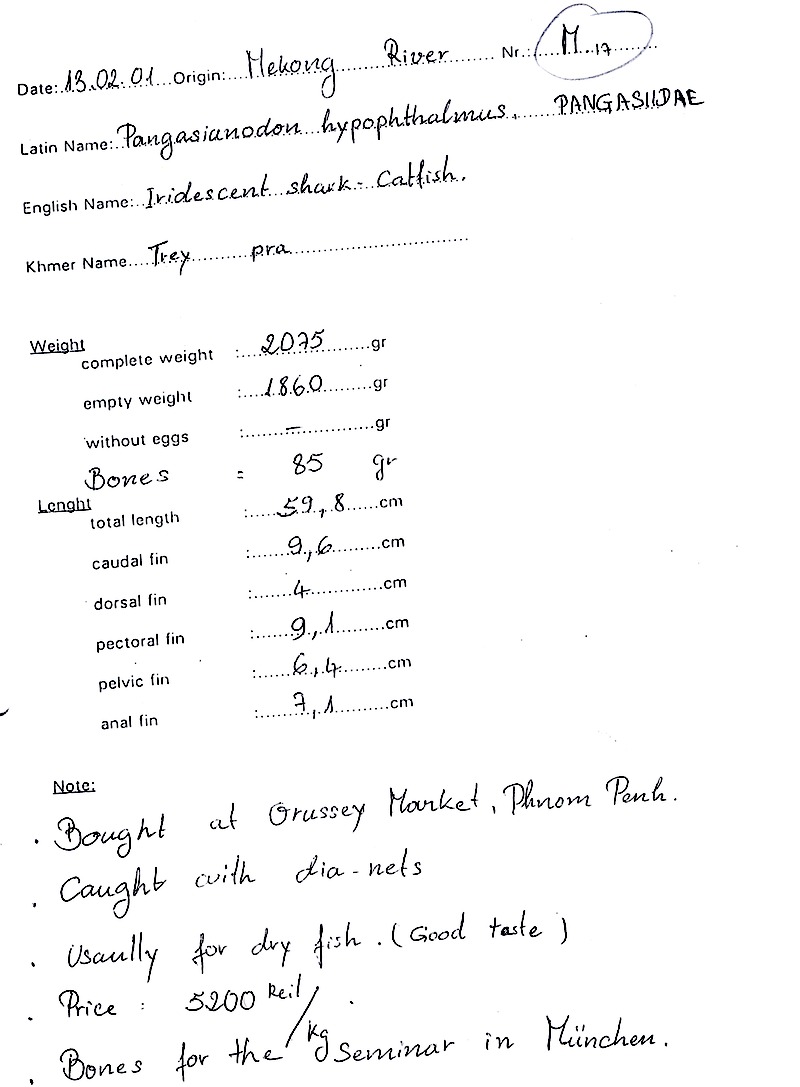 Date: 13.02.01 Origin: Mekong River Nr.: M 17
Latin Name: Pangasianodon hypophthalmus, PANGASIIDAE
English Name: Iridescent shark-Catfish.
Khmer Name Trey pra
Weight
complete weight : 2075 gr
empty weight : 1860 gr
without eggs : – gr
Bones = 85 gr
Lenght
total length : 59,8 cm
caudal fin : 9,6 cm
dorsal fin : 4 cm
pectoral fin : 9,1 cm
pelvic fin : 6,4 cm
anal fin : 7,1 cm
Note:
. Bought at Orussey Market, Phnom Penh.
. Caught with dia-nets
. Usaully for dry fish. (Good taste)
. Price : 5200 Reil/kg.
. Bones for the Seminar in München.